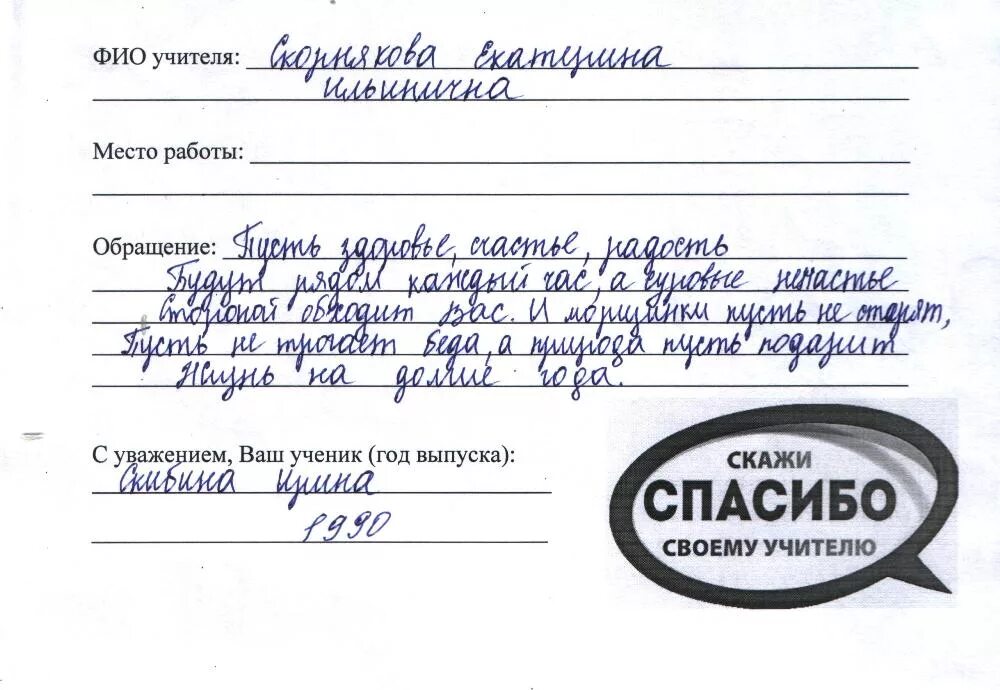 ФИО учителя: Скорнякова Екатерина
Ильинична
Место работы:
Обращение: Пусть здоровье, счастье, радость
Будут рядом каждый час, а суровые ненастье
Стороной обходит Вас. И морщинки пусть не старят,
Пусть не трогает беда, а природа пусть подарит
Жизнь на долгие года.
С уважением, Ваш ученик (год выпуска):
Скибина Ирина
1990
СКАЖИ
СПАСИБО
СВОЕМУ УЧИТЕЛЮ